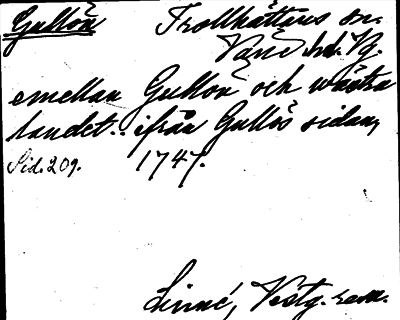 Gullön Trollhättans sn.
Väne hd. Vg.
emellan Gullön och wästra
landet.. ifrån Gullös sidan,
Sid. 209. 1747.
Linné, Västg. resa.